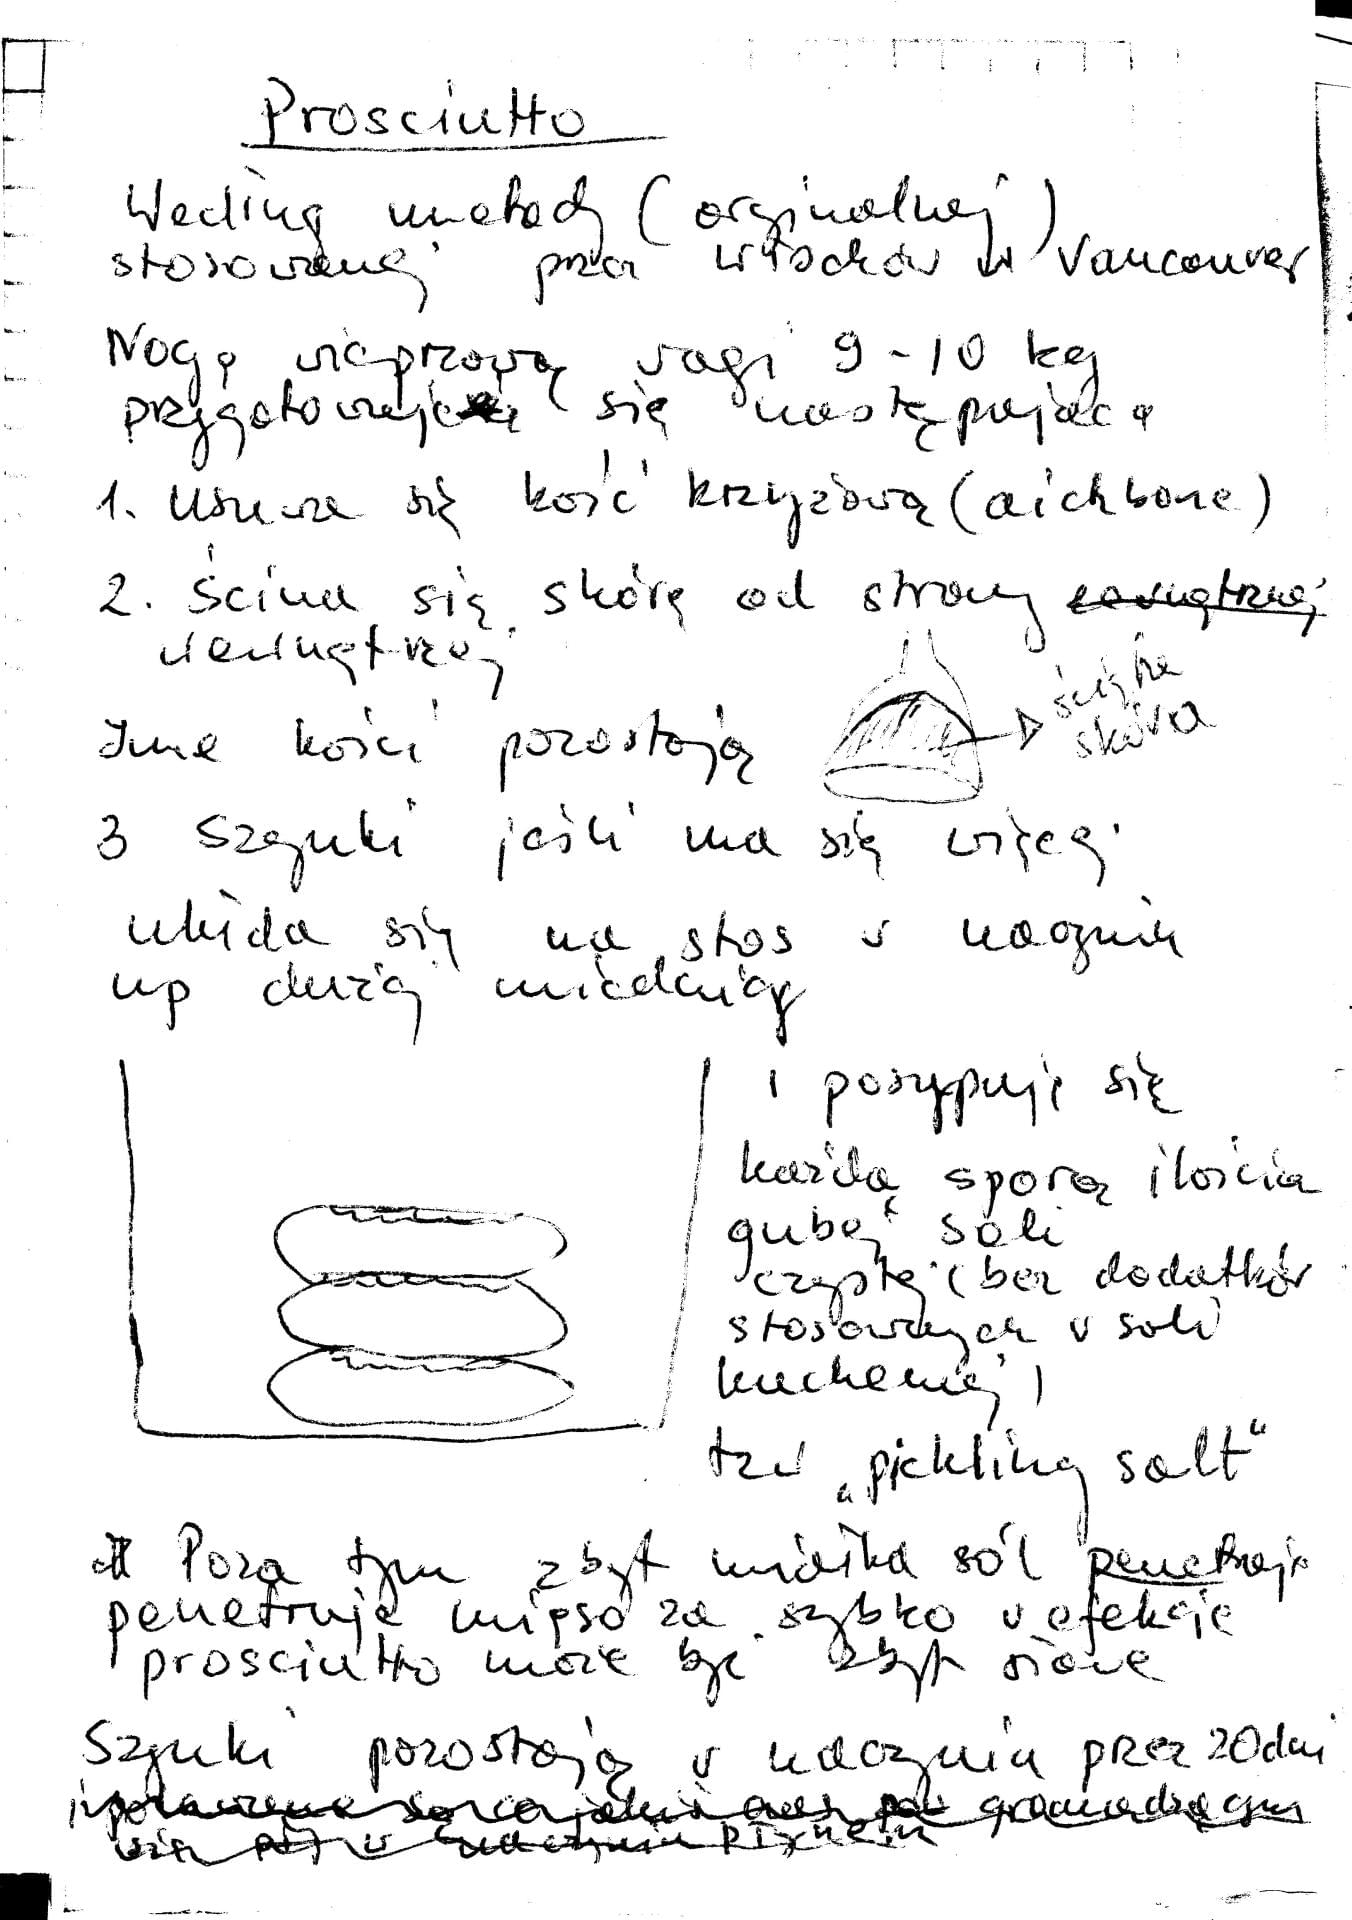 Prosciutto
Według metody (orginalnej)
stosowanej przez Włochów w Vancouver
Nogę wieprzową wagi 9-10 kg
przygotowuje się następująco
1. Usuwa się kość krzyżową (aichbone)
2. Ścina się skórę od strony zewnętrznej
wewnętrznej
Inne kości pozostają
ścięta
skóra
3 Szynki jeśli ma się więcej
układa się na stos w naczyniu
np dużej miednicy
i posypuje się
każdą sporą ilością
grubej soli
czystej (bez dodatków
stosowanych w soli
kuchennej)
tzw „pickling salt"
Poza tym zbyt miałka sól penetruje
penetruje mięso za szybko w efekcie
prosciutto może być zbyt słone
Szynki pozostają w naczyniu przez 20 dni
gromadzącym
się w naczyniu płynem